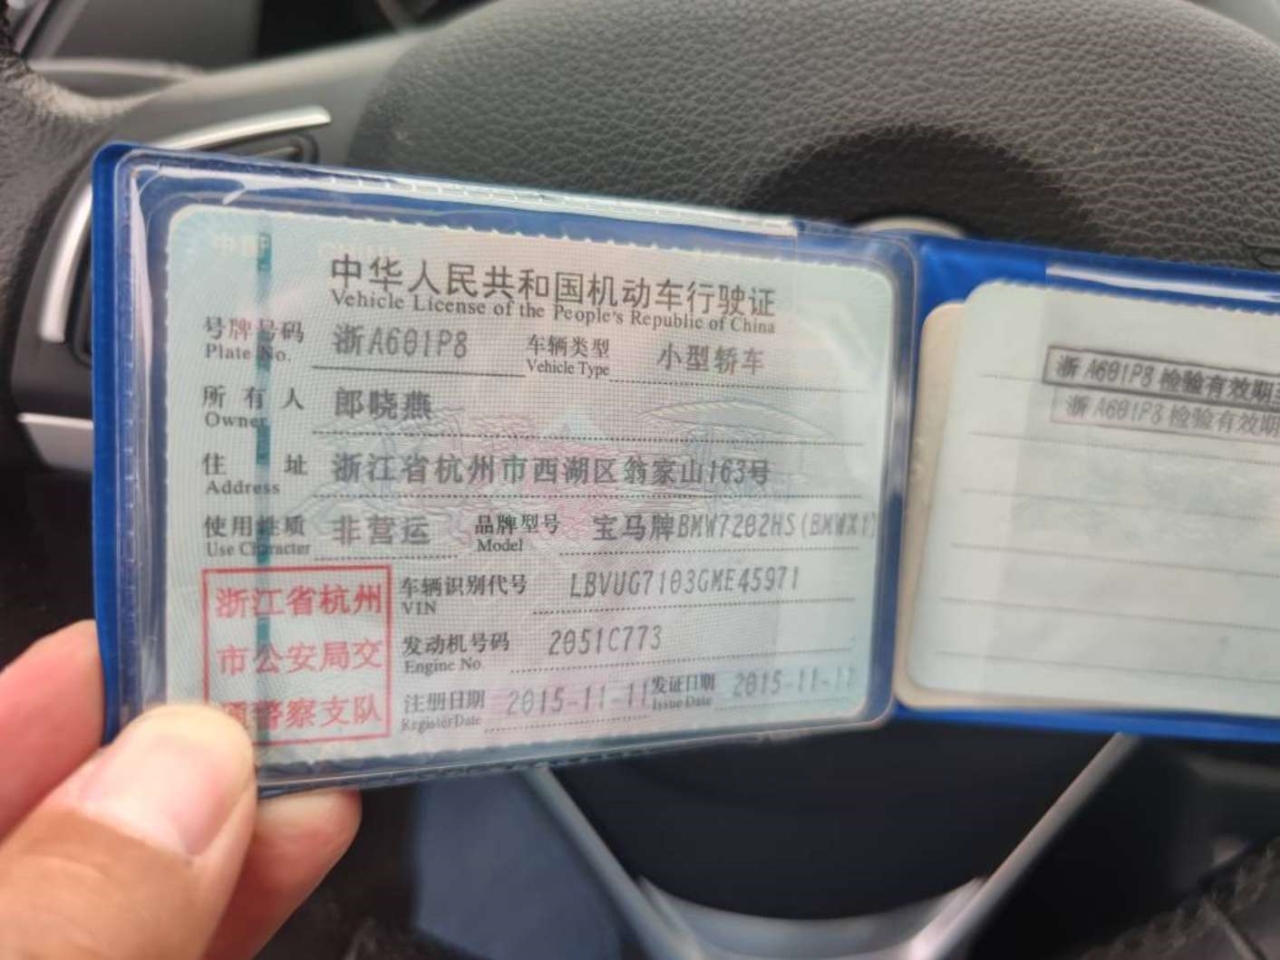 中华人民共和国机动车行驶证
Vehicle License of the People's Republic of China
号牌号码 浙A601P8 车辆类型 小型轿车
Plate No. Vehicle Type
所有人 郎晓燕
Owner
住址 浙江省杭州市西湖区翁家山163号
Address
使用性质 非营运 品牌型号 宝马牌BMW7202HS(BMWX1)
Use Character Model
浙江省杭州
市公安局交
通警察支队
车辆识别代号 LBVUG7103GME45971
VIN
发动机号码 2051C773
Engine No.
注册日期 2015-11-11 发证日期 2015-11-11
Register Date Issue Date
浙A601P8检验有效期
浙A601P8检验有效期